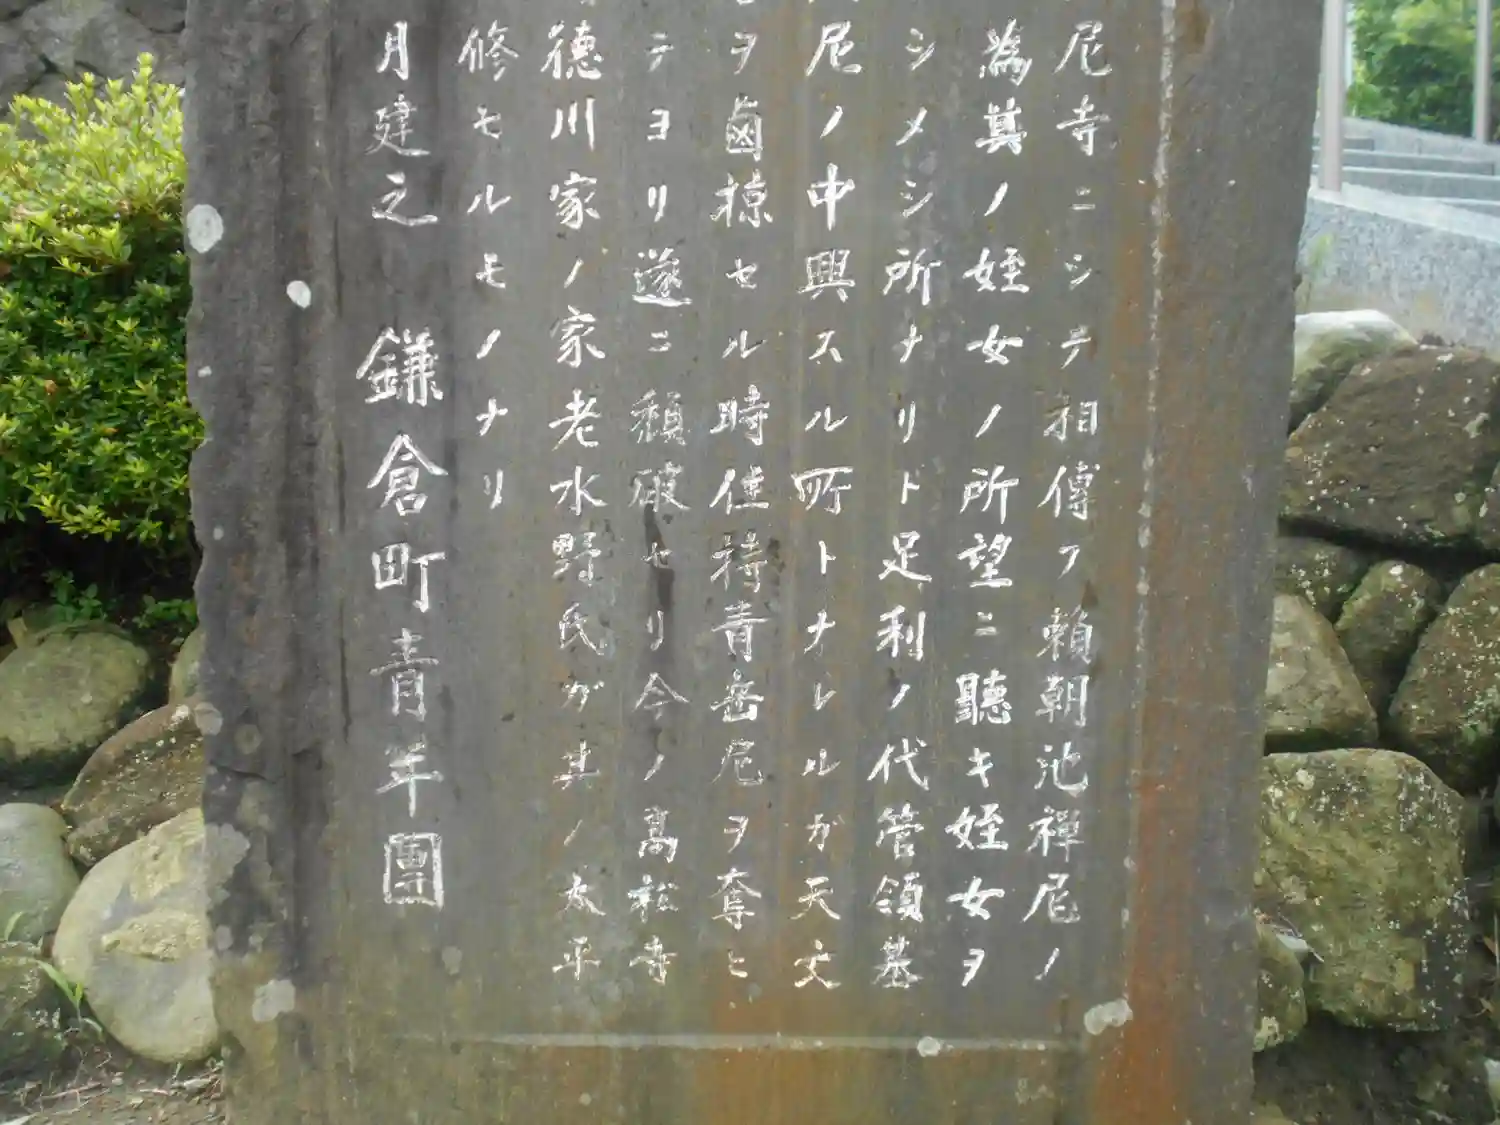 尼寺ニシテ相傳フ頼朝池禅尼ノ
為其ノ姪女ノ所望ニ聽キ姪女ヲ
シメシ所ナリト足利ノ代管領基
尼ノ中興スル所トナレルガ天文
ヲ鹵掠セル時住持青岳尼ヲ奪ヒ
テヨリ遂ニ頽破セリ今ノ高松寺
德川家ノ家老水野氏ガ其ノ太平
修セルモノナリ
月建之 鎌倉町青年團